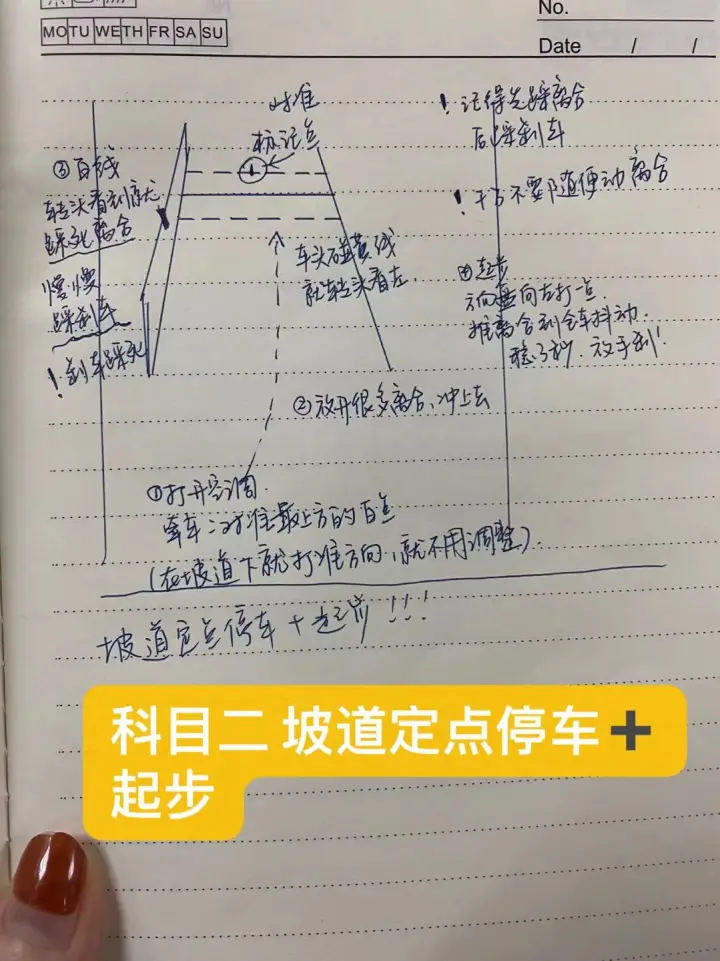 MO TU WE TH FR SA SU
No.
Date / /
对准
标记点
！记得先踩离合
后踩刹车
！千万不要随便动离合
③白线
转头看到就
踩死离合
慢慢
踩刹车
！刹车踩死
车头碰黄线
就转头看左
④起步
方向盘向左打一点
推离合到全车抖动
稳3秒．放手刹！
②放开很多离合、冲上去
①打开空调．
牵车：对准最上方的白点
（在坡道下就打准方向，就不用调整）．
坡道定点停车+起步！！！
科目二 坡道定点停车➕
起步